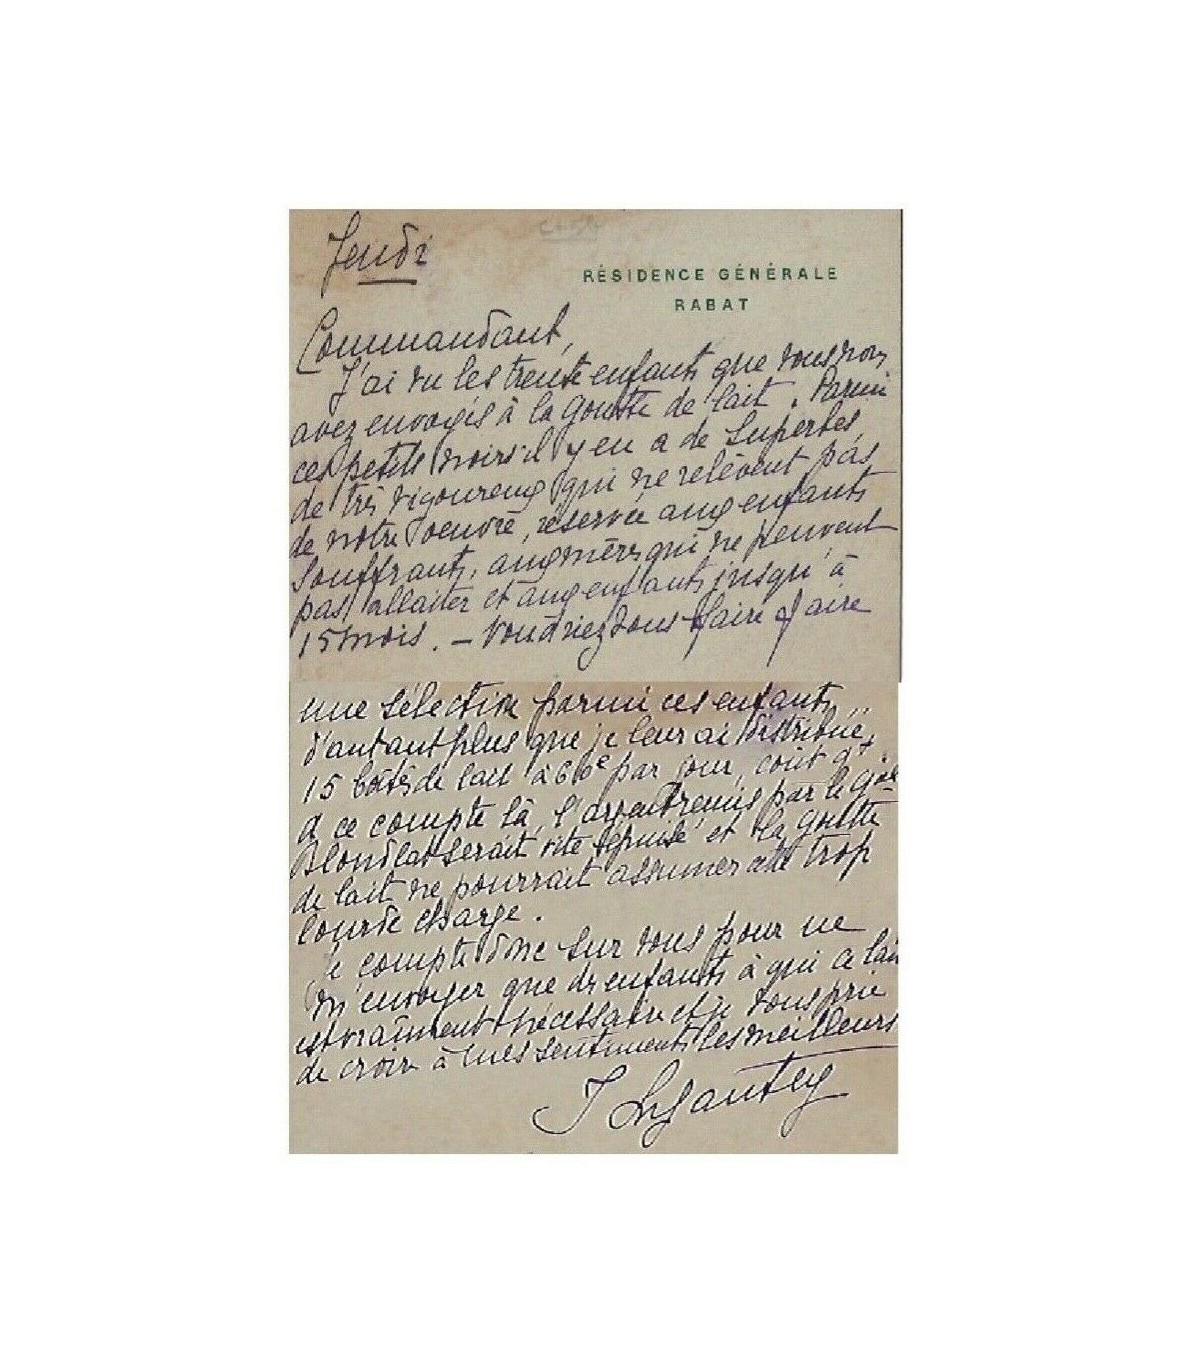 Jeudi
RÉSIDENCE GÉNÉRALE
RABAT
Commandant,
J'ai vu les trente enfants que vous nous
avez envoyés à la goutte de lait. Parmi
ces petits noirs il y en a de superbes,
de très vigoureux qui ne relèvent pas
de notre oeuvre, réservée aux enfants
souffrants, aux mères qui ne peuvent
pas allaiter et aux enfants jusqu'à
15 mois. – Voudriez vous faire faire
une sélection parmi ces enfants,
d'autant plus que je leur ai distribué
15 boîtes de lait à par jour,
à ce compte là, l'argent remis par le Gal
Blondlat serait vite épuisé et la goutte
de lait ne pourrait assumer cette trop
lourde charge.
Je compte donc sur vous pour ne
m'envoyer que des enfants à qui ce lait
est vraiment nécessaire et je vous prie
de croire à mes sentiments les meilleurs
I Lyautey